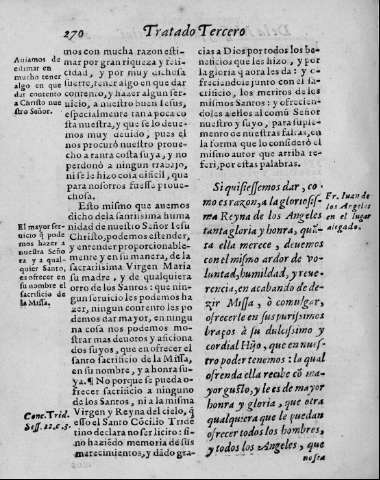 270 Tratado Tercero
Auiamos de
estimar en
mucho tener
algo en que
dar contento
a Christo nue
stro Señor.
mos con mucha razon esti-
mar por gran riqueza y feli-
cidad, y por muy dichosa
suerte, tener algo en que dar
contento, y hazer algun ser-
uicio, a nuestro buen Iesus,
especialmente tan a poca co
sta nuestra, y que se lo deue-
mos muy deuido, pues el
nos procurò nuestro proue-
cho a tanta costa suya, y no
perdonò a ningun trabajo,
ni se le hizo cosa dificil, que
para nosotros fuesse proue-
chosa.
El mayor ser-
uicio q̃ pode
mos hazer a
nuestra Seño
ra y a qual
quier Santo,
es ofrecer en
su nombre el
sacrificio de
la Missa.
Esto mismo que auemos
dicho de la santissima huma
nidad de nuestro Señor Iesu
Christo, podemos estender,
y entender proporcionable-
mente y en su manera, de la
sacratissima Virgen Maria
su madre, y de qualquiera
otro de los Santos: que nin-
gun seruicio les podemos ha
zer, ningun contento les po
demos dar mayor, en ningu
na cosa nos podemos mo-
strar mas deuotos y aficiona
dos suyos, que en ofrecer el
santo sacrificio de la Missa,
en su nombre, y a honra su-
ya. ¶ No porque se pueda o-
frecer sacrificio a ninguno
de los Santos, ni a la misma
Virgen y Reyna del cielo, q̃
esso el Santo Cõcilio Tride
tino declara no ser licito: si-
no haziẽdo memoria de sus
merecimientos, y dãdo gra-
Conc. Trid.
Sess. 22. c. 3.
cias a Dios por todos los be-
neficios que les hizo, y por
la gloria q̃ aora les da: y o-
freciendole junto con el sa-
crificio, los meritos de los
mismos Santos: y ofrecien-
do les a ellos al comũ Señor
nuestro y suyo, para suple-
mento de nuestras faltas, en
la forma que lo considerò el
mismo autor que arriba re-
feri, por estas palabras.
Si quisiessemos dar, co-
mo es razon, a la gloriosis-
ma Reyna de los Angeles
tanta gloria y honra, quã-
ta ella merece, deuemos
con el mismo ardor de vo-
luntad, humildad, y reue-
rencia, en acabando de de-
zir Missa, ò comulgar,
ofrecerle en sus purissimos
braços à su dulcissimo y
cordial Hijo, que en nues-
tro poder tenemos: la qual
ofrenda ella recibe cõ ma-
yor gusto, y le es de mayor
honra y gloria, que otra
qualquiera que le puedan
ofrecer todos los hombres,
y todos los Angeles, que
Fr. Iuan de
los Angeles
en el lugar
alegado.